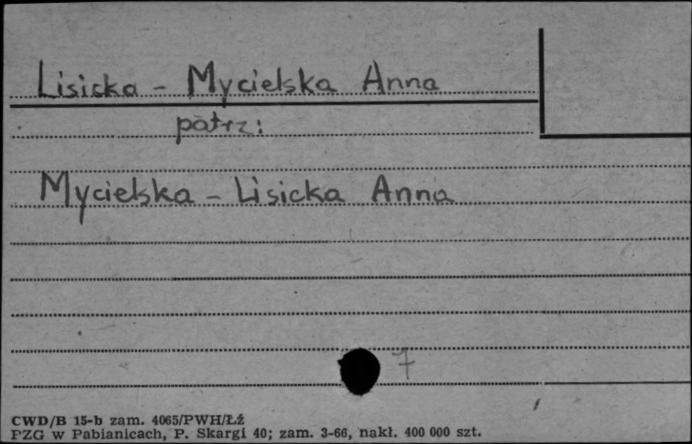 Lisicka - Mycielska Anna
patrz:
Mycielska - Lisicka Anna
7
CWD/B 15-b zam. 4065/PWH/Łź
PZG w Pabianicach, P. Skargi 40; zam. 3-66, nakł. 400 000 szt.